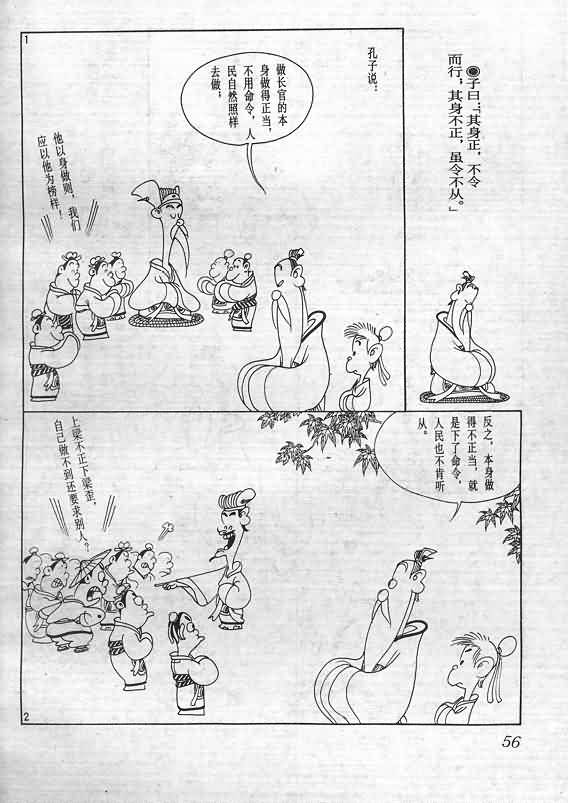 ◉子曰:「其身正,不令
而行;其身不正,虽令不从。」
1
孔子说:
做长官的本
身做得正当,
不用命令,人
民自然照样
去做;
他以身做则,我们
应以他为榜样!
反之,本身做
得不正当,就
是下了命令,
人民也不肯听
从。
上梁不正下梁歪,
自己做不到还要求别人?
2
56